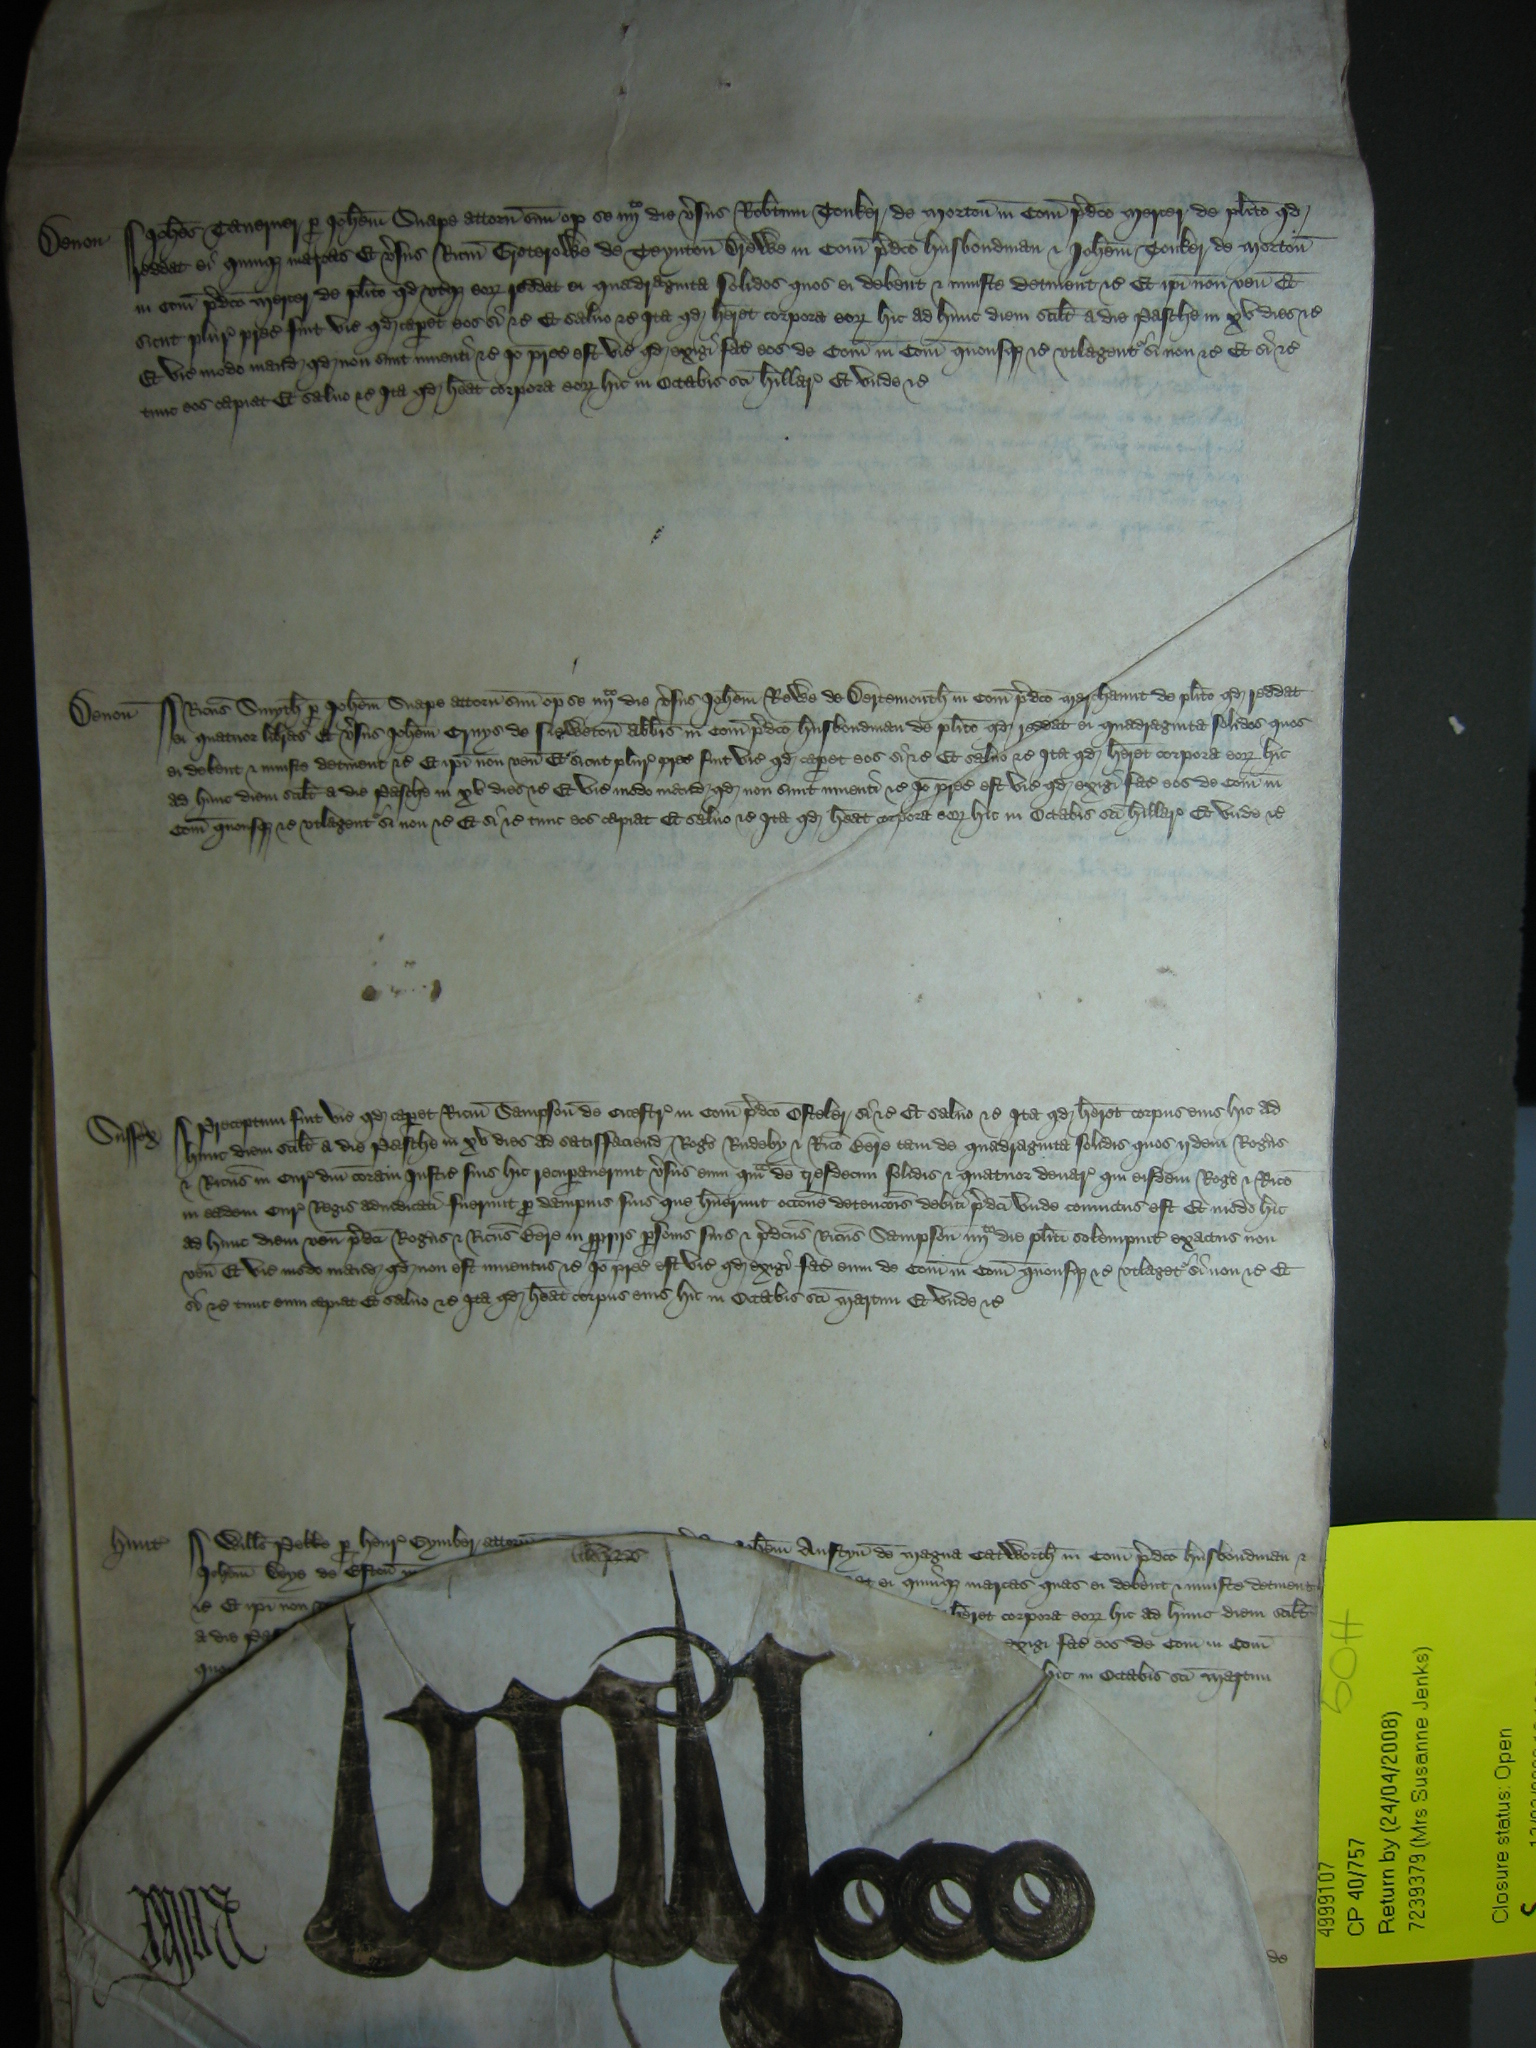 Devon Johes Taverner p Johem Snape attorn suu op se iiijto die vsus Robtum Tonker de Morton in Com pdco Mercer de plito qd
reddat ei quinq marcas Et vsus Ricm de Teynton Drewe in Com pdco husbondman & Johem Tonker de Morton
in Com pdco Mercer de plito qd utq eor reddat ei quadraginta solidos quos ei debent & iniuste detinent &c Et ipi non ven Et
sicut plur prec fuit vic qd caperet eos si &c Et salvo &c Ita qd heret corpora eor hic ad hunc diem scilt a die Pasche in xv dies &c
Et vic modo mand qd non sunt inventi &c Io prec est vic qd exigi fac eos de Com in Com quousq &c utlagent si non &c Et si &c
tunc eos capiat Et salvo &c Ita qd heat corpora eor hic in Octabis sci Hillar Et unde &c
Devon Ricus Smyth p Johem Snape attorn suu op se iiijto die vsus Johem Rewe de Dertemouth in Com pdco Merchaunt de plito qd reddat
ei quatuor libras Et vsus Johem Cruys de Abbis in Com pdco husbondman de plito qd reddat ei quadraginta solidos quos
ei debent & iniuste detinent &c Et ipi non ven Et sicut plur prec fuit vic qd caperet eos si &c Et salvo &c Ita qd heret corpora eor hic
ad hunc diem scilt a die Pasche in xv dies &c Et vic modo mand qd non sunt inventi &c Io prec est vic qd exigi fac eos de Com in
Com quousq &c utlagent si non &c Et si &c tunc eos capiat Et salvo &c Ita qd heat corpora eor hic in Octabis sci Hillar Et unde &c
Sussex Preceptum fuit vic qd caperet Ricm Sampson de Cicestr in Com pdco Osteler si &c Et salvo &c Ita qd heret corpus eius hic ad
hunc diem scilt a die Pasche in xv dies ad satisfaciend Rogo Rudeby & Rico Bere tam de quadraginta solidis quos iidem Rogus
& Ricus in Cur dni coram Justic suis hic recupaverunt vsus eum qm de tresdecim solidis & quatuor denar qui eisdem Rogo & Rico
in eadem Cur Regis adiudicati fuerunt p dampnis suis que huerunt occone detencois debiti pdci unde convictus est Et modo hic
ad hunc diem ven pdci Rogus & Ricus Bere in pprijs psonis suis & pdcus Ricus Sampson iiijto die pliti solempnit exactus non
ven Et vic modo mand qd non est inventus &c Io prec est vic qd exigi fac eum de Com in Com quousq &c utlaget si non &c Et
si &c tunc eum capiat Et salvo &c Ita qd heat corpus eius hic in Octabis sci Martini Et unde &c
Hunt Wills p Henr Cymber attorn Johem Austyn de Magna Catworth in Com pdco husbondman &
Johem de Eston ei quinq marcas quas ei debent & iniuste detinent
&c Et ipi non heret corpora eor hic ad hunc diem scilt
a die Pas exigi fac eos de Com in Com
quo hic in Octabis sci Martini
de
50H
4999107
CP 40/757
Return by (24/04/2008)
7239379 (Mrs Susanne Jenks)
Closure status: Open